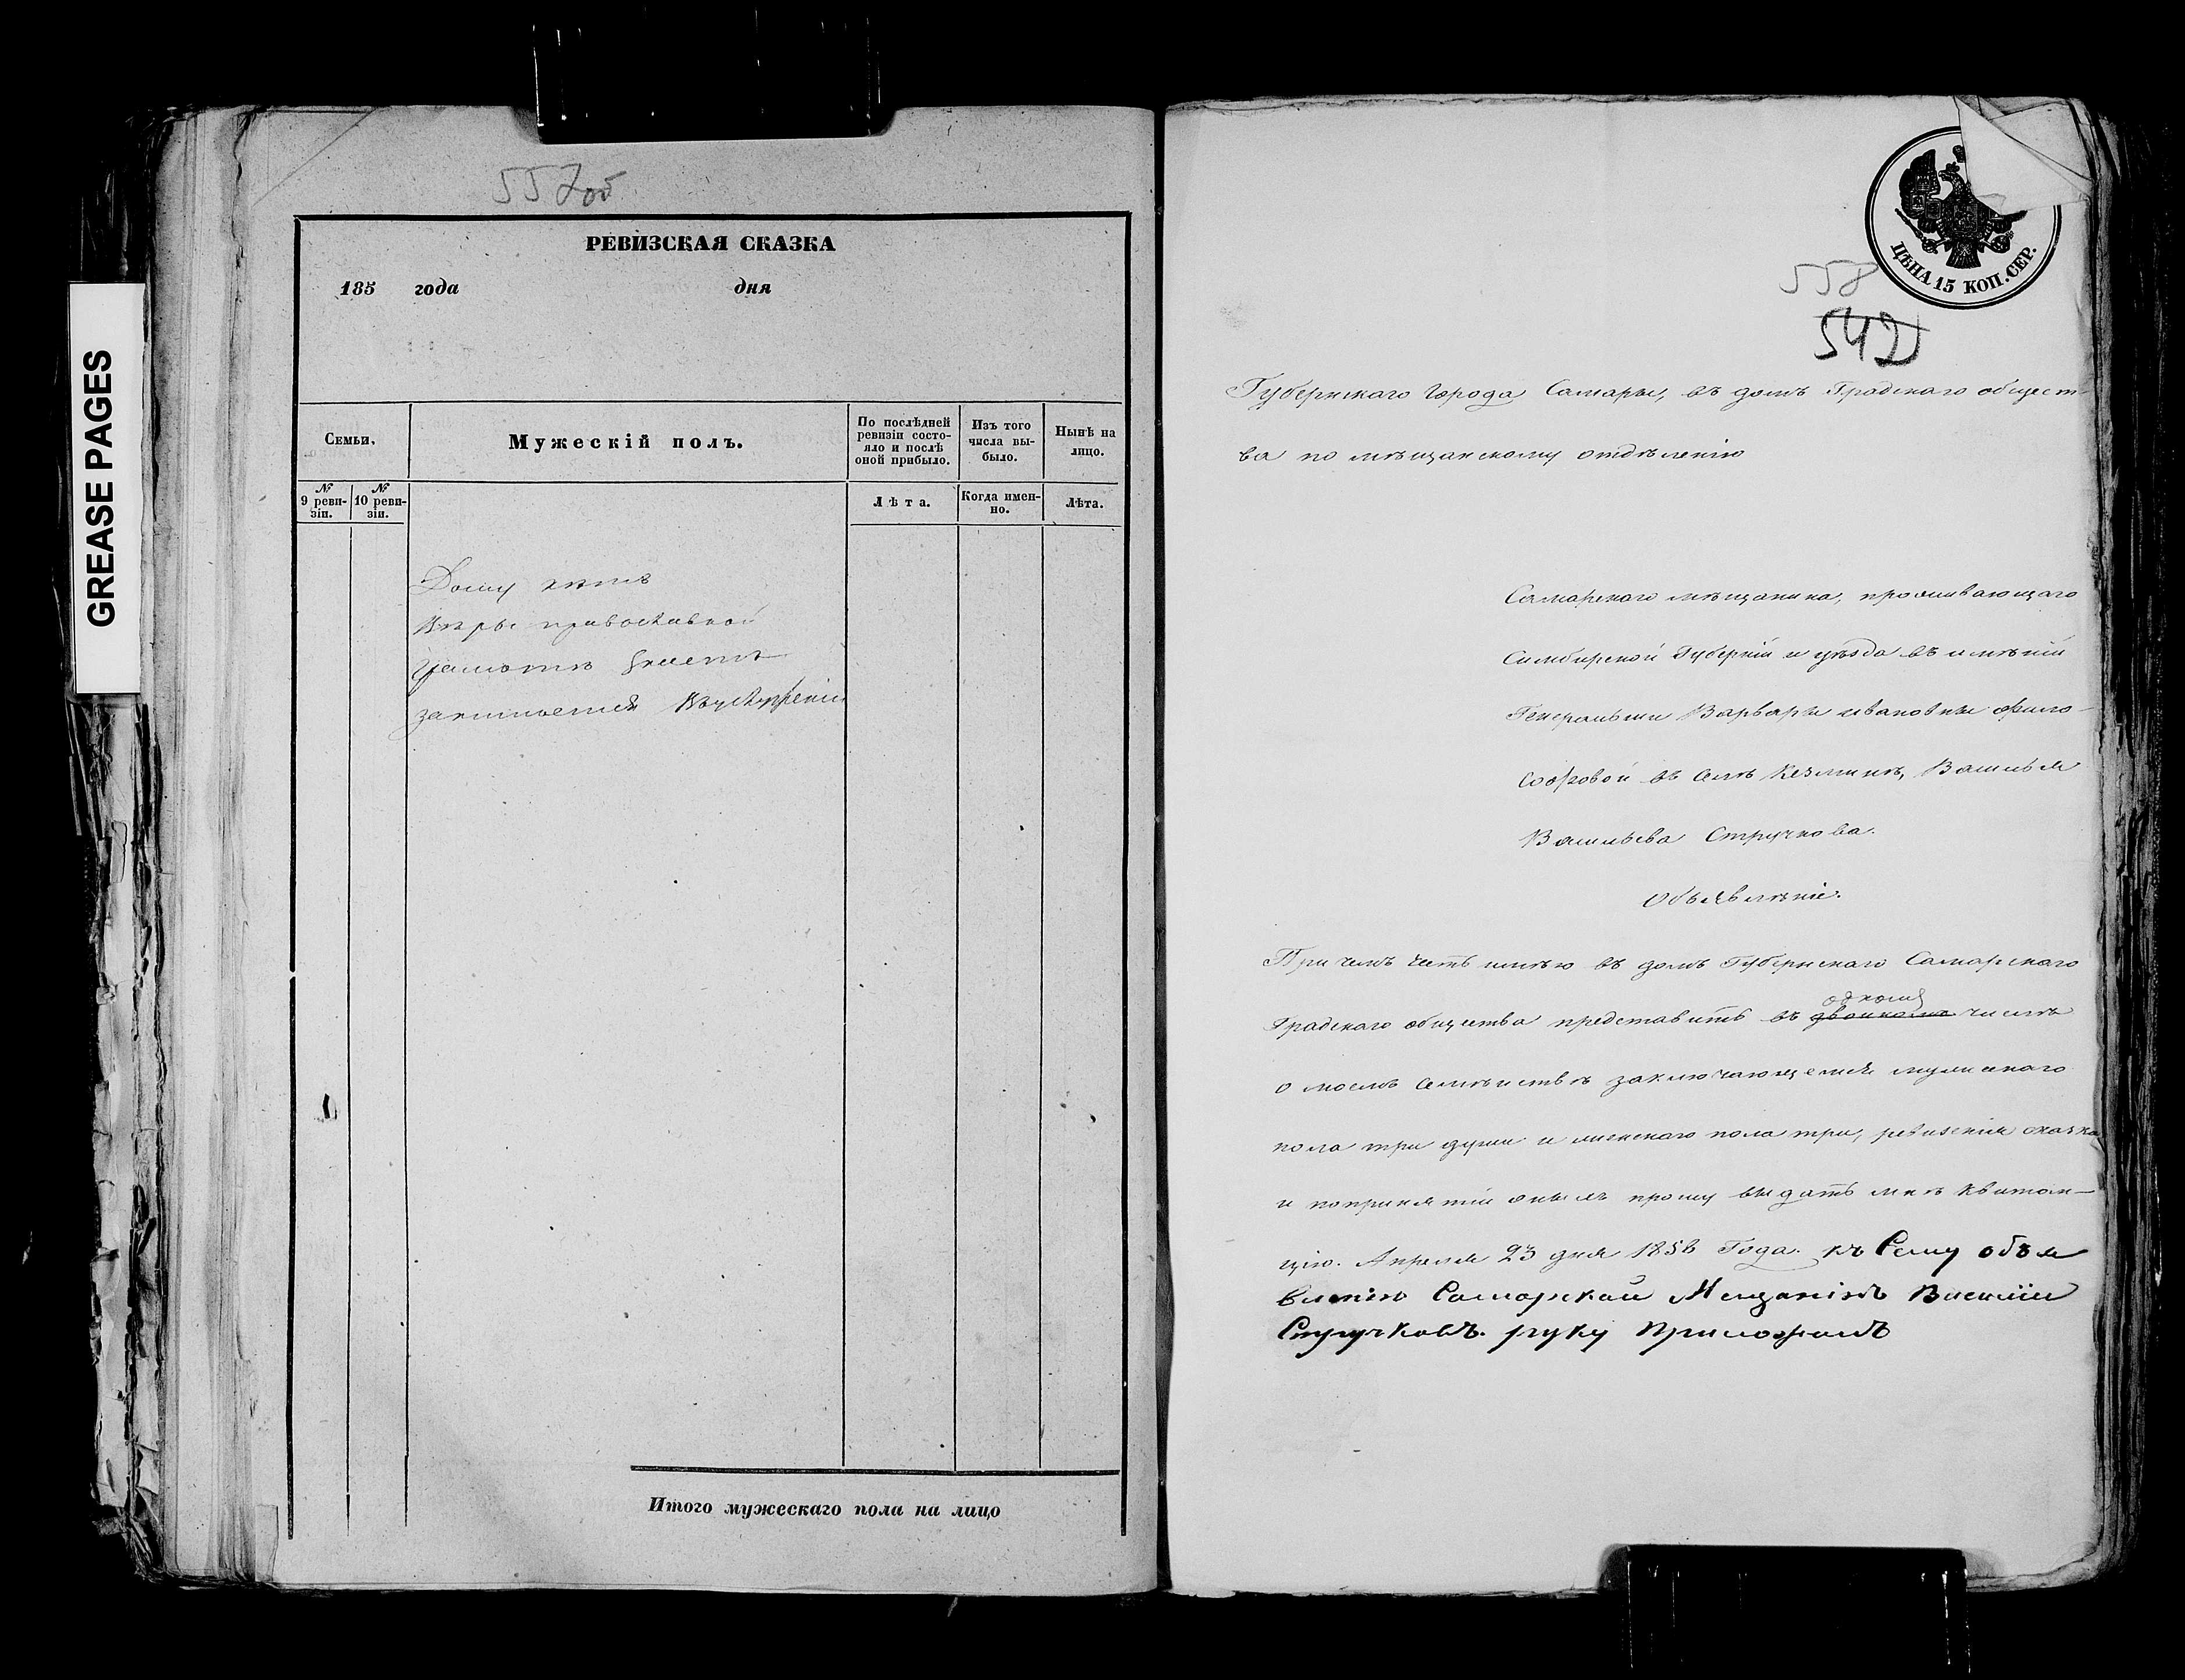 GREASE PAGES
557об
РЕВИЗСКАЯ СКАЗКА
185 года дня
Семьи.
Мужескій полъ.
По послѣдней ревизіи состо-
яло и послѣ оной прибыло.
Изъ того числа вы-
было.
Нынѣ на лицо.
№ 9 реви-
зіи.
№ 10 реви-
зіи.
Лѣта.
Когда имен-
но.
Лѣта.
Дому
Вѣры православной
Грамотѣ знаетъ
занимается
Итого мужескаго пола на лицо
ЦѢНА 15 КОП. СЕР.
558
542
Губернскаго Города Самары, въ домъ Градскаго общест-
ва по мѣщанскому отдѣленію
Самарскаго мѣщанина, проживающаго
Симбирской Губерніи и уѣзда въ имѣніи
Генеральши Варвары ивановны фило-
софовой въ селѣ Василья
Васильева Стручкова.
Объявлѣніе.
При чемъ честь имѣю въ домъ Губернскаго Самарскаго
одномъ
Градскаго общества представить въ двойномъ числѣ
о моемъ семѣйствѣ заключающемся мужскаго
пола три души и женскаго пола три, ревизскія сказки
и попринятіи оныхъ прошу выдать мнѣ квитан-
цію. Апреля 23 дня 1858 Года. къ Сему объя
влѣнію Самарской Мещанінъ Василіи
Стручковъ. руку Приложилъ